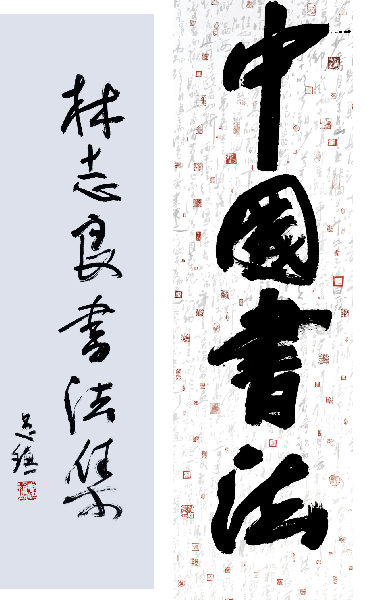 中國書法
林志良書法集